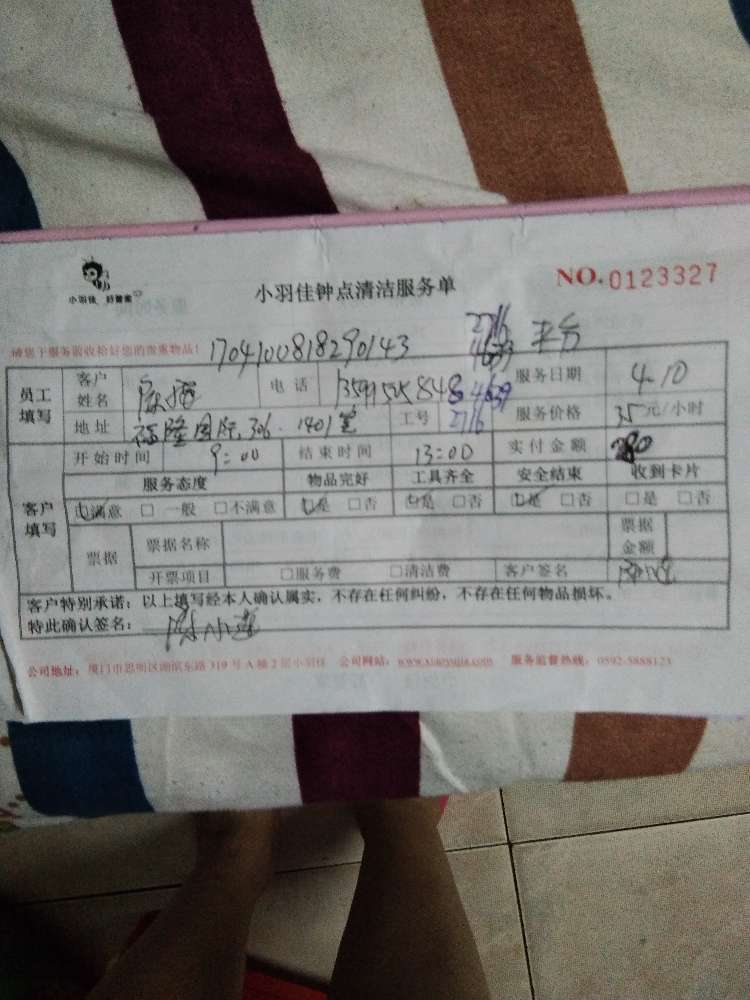 小羽佳 好管家
小羽佳钟点清洁服务单
NO.0123327
请您于服务前收拾好您的贵重物品!
1704100818290143
2716
平台
员工填写
客户姓名
电话
服务日期 4-10
地址 国际, 306. 1401
工号 2716
服务价格 35元/小时
客户填写
开始时间 9:00 结束时间 13:00 实付金额
服务态度 物品完好 工具齐全 安全结束 收到卡片
□满意 □一般 □不满意 □是 □否 □是 □否 □是 □否 □是 □否
票据 票据名称 票据金额
开票项目 □服务费 □清洁费 客户签名
客户特别承诺:以上填写经本人确认属实,不存在任何纠纷,不存在任何物品损坏。
特此确认签名: 陈小莲
公司地址:厦门市思明区湖滨东路319号A幢2层小羽佳 公司网站: 服务监督热线:0592-5888123